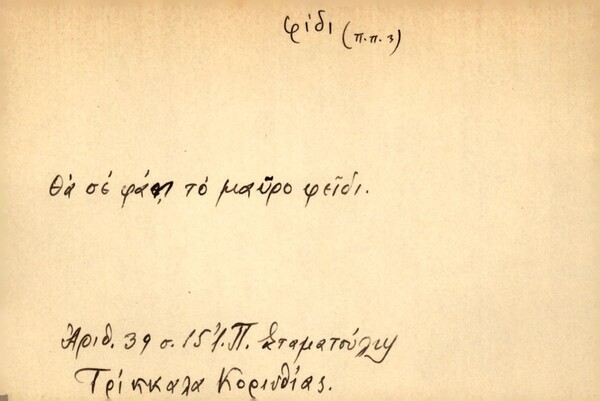 φίδι (π.π.3)
Θά σέ φάῃ τό μαῦρο φεῖδι.
Ἀριθ. 39 σ. 151. Π. Σταματούλη
Τρίκκαλα Κορινθίας.